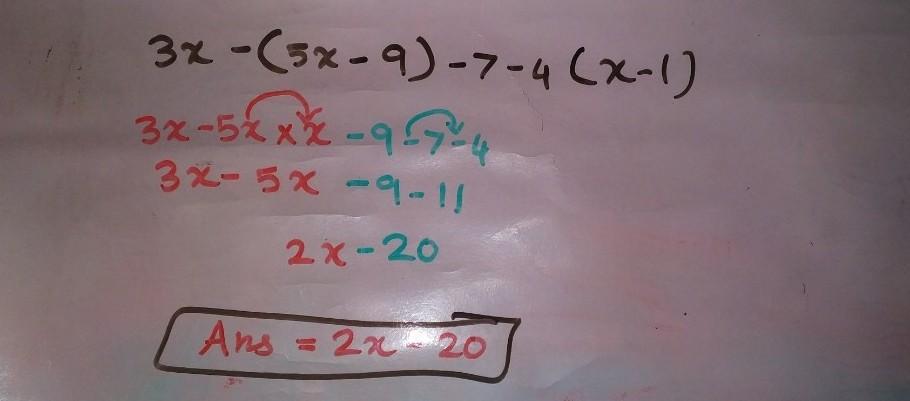 3x-(5x-9)-7-4(x-1)
3x-5x×x-9-7-4
3x-5x-9-11
2x-20
Ans = 2x-20